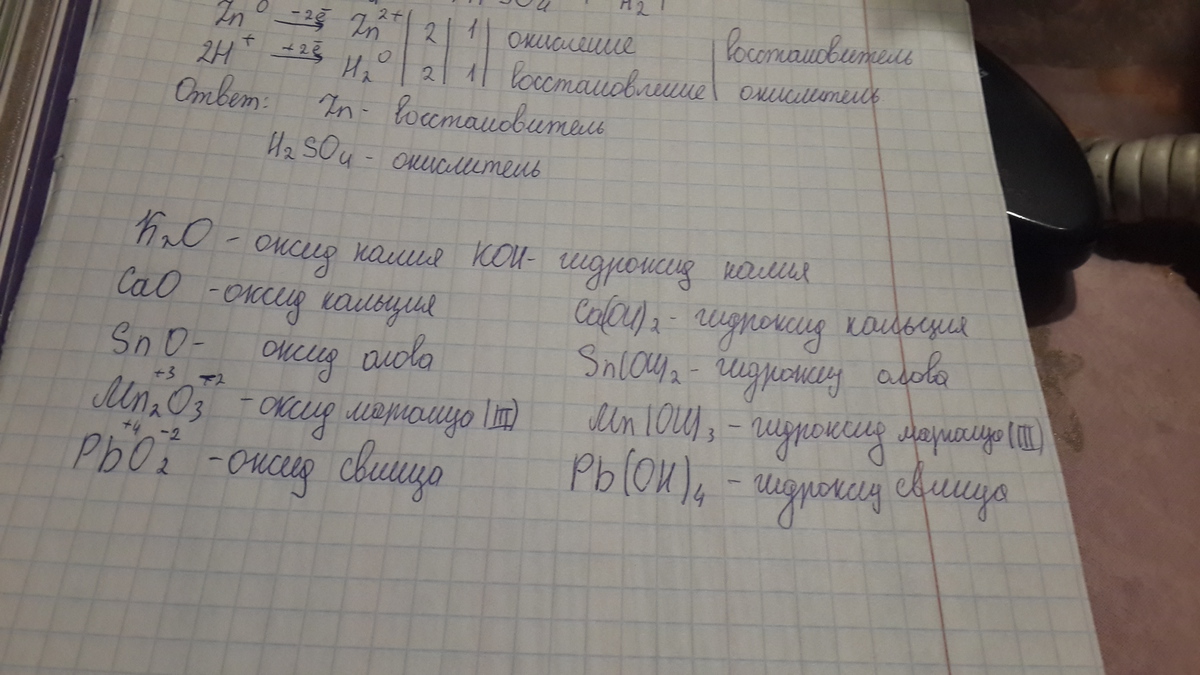 SO4 H2
Zn⁰ -2ē→ Zn²⁺ | 2 | 1 | окисление | восстановитель
2H⁺ +2ē→ H₂⁰ | 2 | 1 | восстановление | окислитель
Ответ: Zn - восстановитель
H₂SO₄ - окислитель
K₂O - оксид калия KOH - гидроксид калия
CaO - оксид кальция Ca(OH)₂ - гидроксид кальция
SnO - оксид олова Sn(OH)₂ - гидроксид олова
Mn₂⁺³O₃⁻² - оксид марганца (III) Mn(OH)₃ - гидроксид марганца (III)
Pb⁺⁴O₂⁻² - оксид свинца Pb(OH)₄ - гидроксид свинца